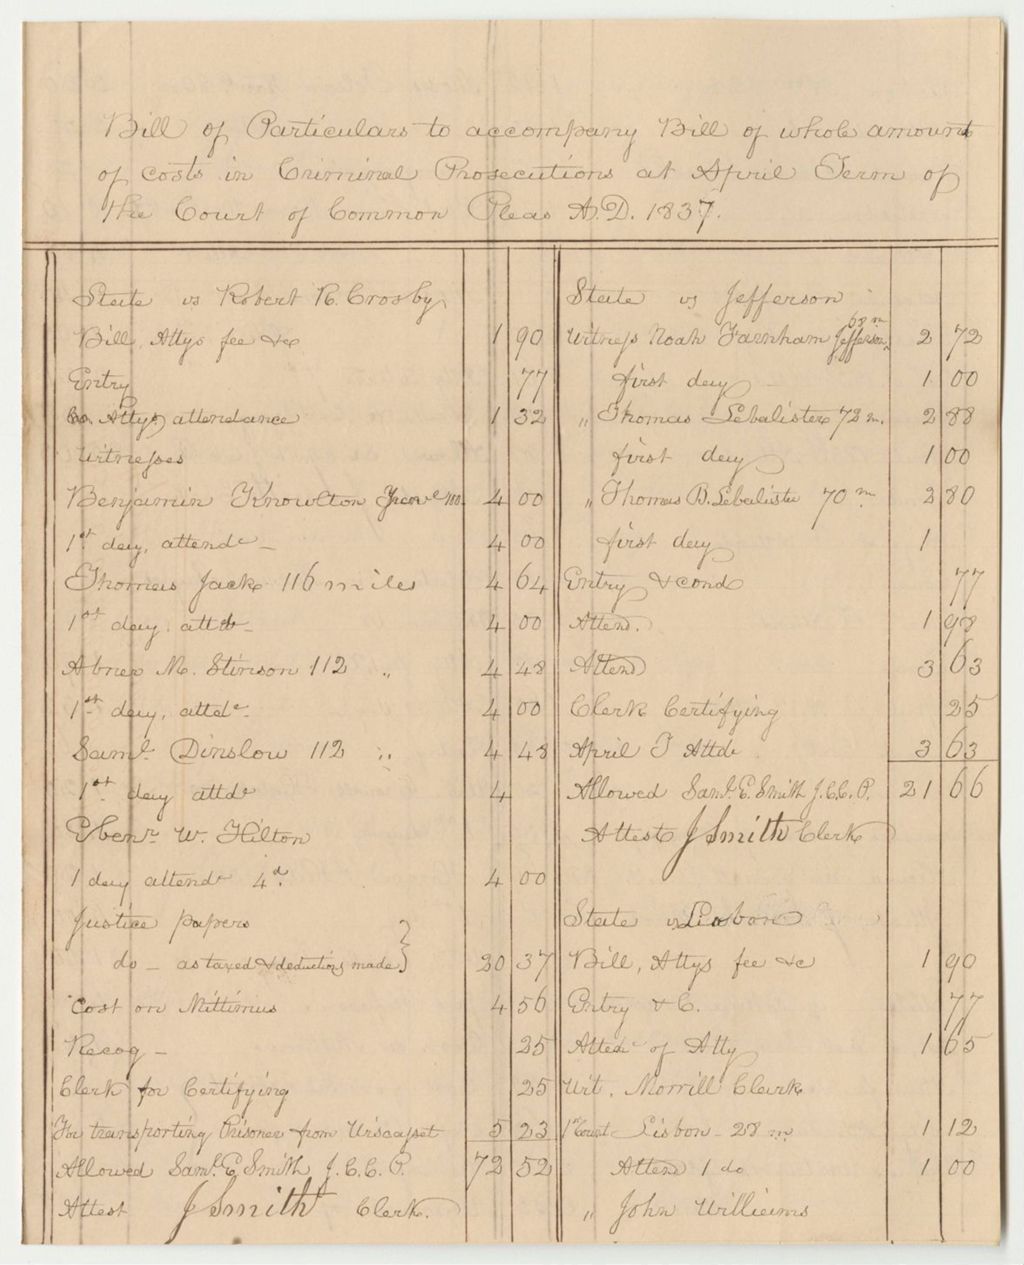 Bill of Particulars to accompany Bill of whole amount
of costs in Criminal Prosecutions at April Term of
the Court of Common Pleas A.D. 1837.
State vs Robert R. Crosby
Bill, Attys fee &c 1 90
Entry 77
Co. Attys attendance 1 32
Witnesses
Benjamin Knowlton 100 4 00
1st day, attendc 4 00
Thomas Jack 116 miles 4 64
1st day. attdc 4 00
Abner M. Stinson 112 „ 4 48
1st day, attdc 4 00
Saml. Dinslow 112 „ 4 48
1st day attdc 4
Ebenr. W. Hilton
1 day attendc 4d. 4 00
Justice papers
do – as taxed & deductions made 20 37
Cost on Mittimus 4 56
Recog – 25
Clerk for Certifying 25
For transporting Prisoner from Wiscasset 5 23
Allowed Saml. E. Smith J.C.C.P. 72 52
Attest J Smith Clerk.
State vs Jefferson
Witness Noah Farnham Jefferson 68 m 2 72
first day 1 00
„ Thomas Lebalister 72 m. 2 88
first day 1 00
„ Thomas B. Lebalister 70 m 2 80
first day 1
Entry & cond 77
Attend. 1 98
Attend 3 63
Clerk Certifying 25
April T Attdc 3 63
Allowed Saml. E. Smith J.C.C.P. 21 66
Attest J Smith Clerk
State vs Lisbon
Bill, Attys fee &c 1 90
Entry & C. 77
Attedc of Atty 1 65
Wit. Morrill Clark
Lisbon – 28 m. 1 12
Attend 1 do 1 00
„ John Williams